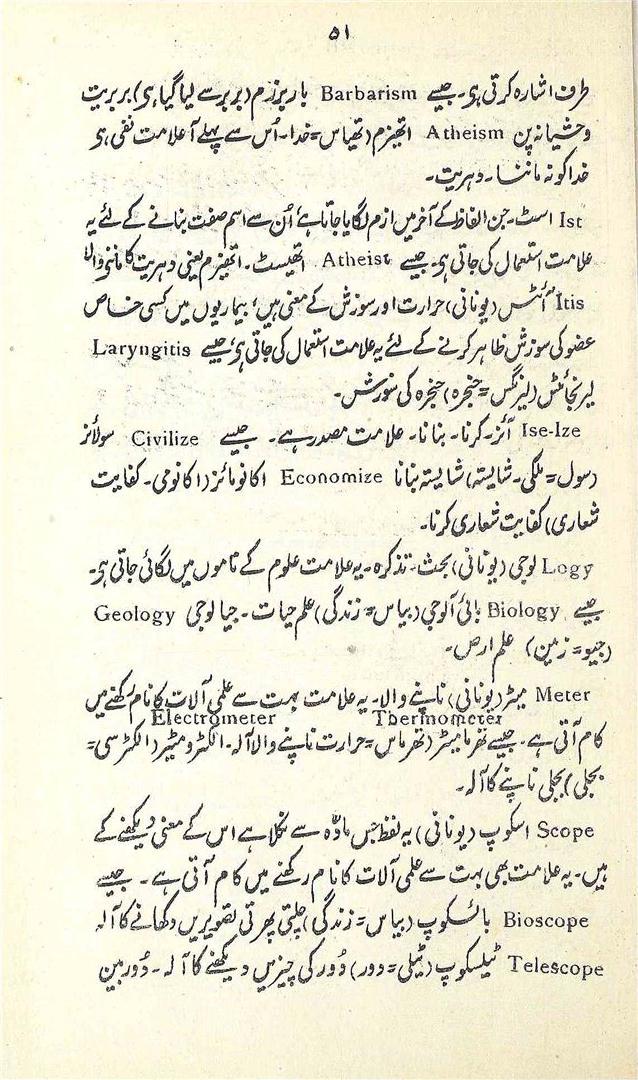 ۵۱
طرف اشارہ کرتی ہی۔ جیسے Barbarism باربرزم (بربر سے لیا گیا ہی) بربریت
وحشیانہ پن Atheism اتھیزم (تھیاس = خدا۔ اُس سے پہلے آ علامت نفی ہی
خدا کو نہ ماننا۔ دہریت۔
Ist اسٹ۔ جن الفاظ کے آخر میں ازم لگایا جاتا ہے اُن سے اسم صفت بنانے کے لئے یہ
علامت استعمال کی جاتی ہی۔ جیسے Atheist اتھیسٹ۔ اتھیزم یعنی دہریت کا ماننے والا
Itis اَئٹس (یونانی) حرارت اور سوزش کے معنی ہیں، بیماریوں میں کسی خاص
عضو کی سوزش ظاہر کرنے کے لئے یہ علامت استعمال کی جاتی ہی، جیسے Laryngitis
لیرنجائٹس (لیرنگس = حنجرہ) حنجرہ کی سوزش۔
Ise-Ize آئز۔ کرنا۔ بنانا۔ علامت مصدر ہے۔ جیسے Civilize سولائز
(سول = ملکی۔ شایستہ) شایستہ بنانا Economize اکانومائز (اکانومی۔ کفایت
شعاری) کفایت شعاری کرنا۔
Logy لوجی (یونانی) بحث۔ تذکرہ۔ یہ علامت علوم کے ناموں میں لگائی جاتی ہی۔
جیسے Biology بائی آلوجی (بیاس = زندگی) علم حیات۔ جیالوجی Geology
(جیو = زمین) علم ارض۔
Meter میٹر (یونانی) ناپنے والا۔ یہ علامت بہت سے علمی آلات کا نام رکھنے میں
Thermometer Electrometer
کام آتی ہے۔ جیسے تھرمامیٹر (تھرماس = حرارت ناپنے والا آلہ۔ الکٹرومیٹر (الکٹرسی =
بجلی) بجلی ناپنے کا آلہ۔
Scope اسکوپ (یونانی) یہ لفظ جس مادّہ سے نکلا ہے اس کے معنی دیکھنے کے
ہیں۔ یہ علامت بھی بہت سے علمی آلات کا نام رکھنے میں کام آتی ہے۔ جیسے
Bioscope بائسکوپ (بیاس = زندگی) چلتی پھرتی تصویریں دکھانے کا آلہ
Telescope ٹیلسکوپ (ٹیلی = دور) دُور کی چیزیں دیکھنے کا آلہ۔ دُوربین